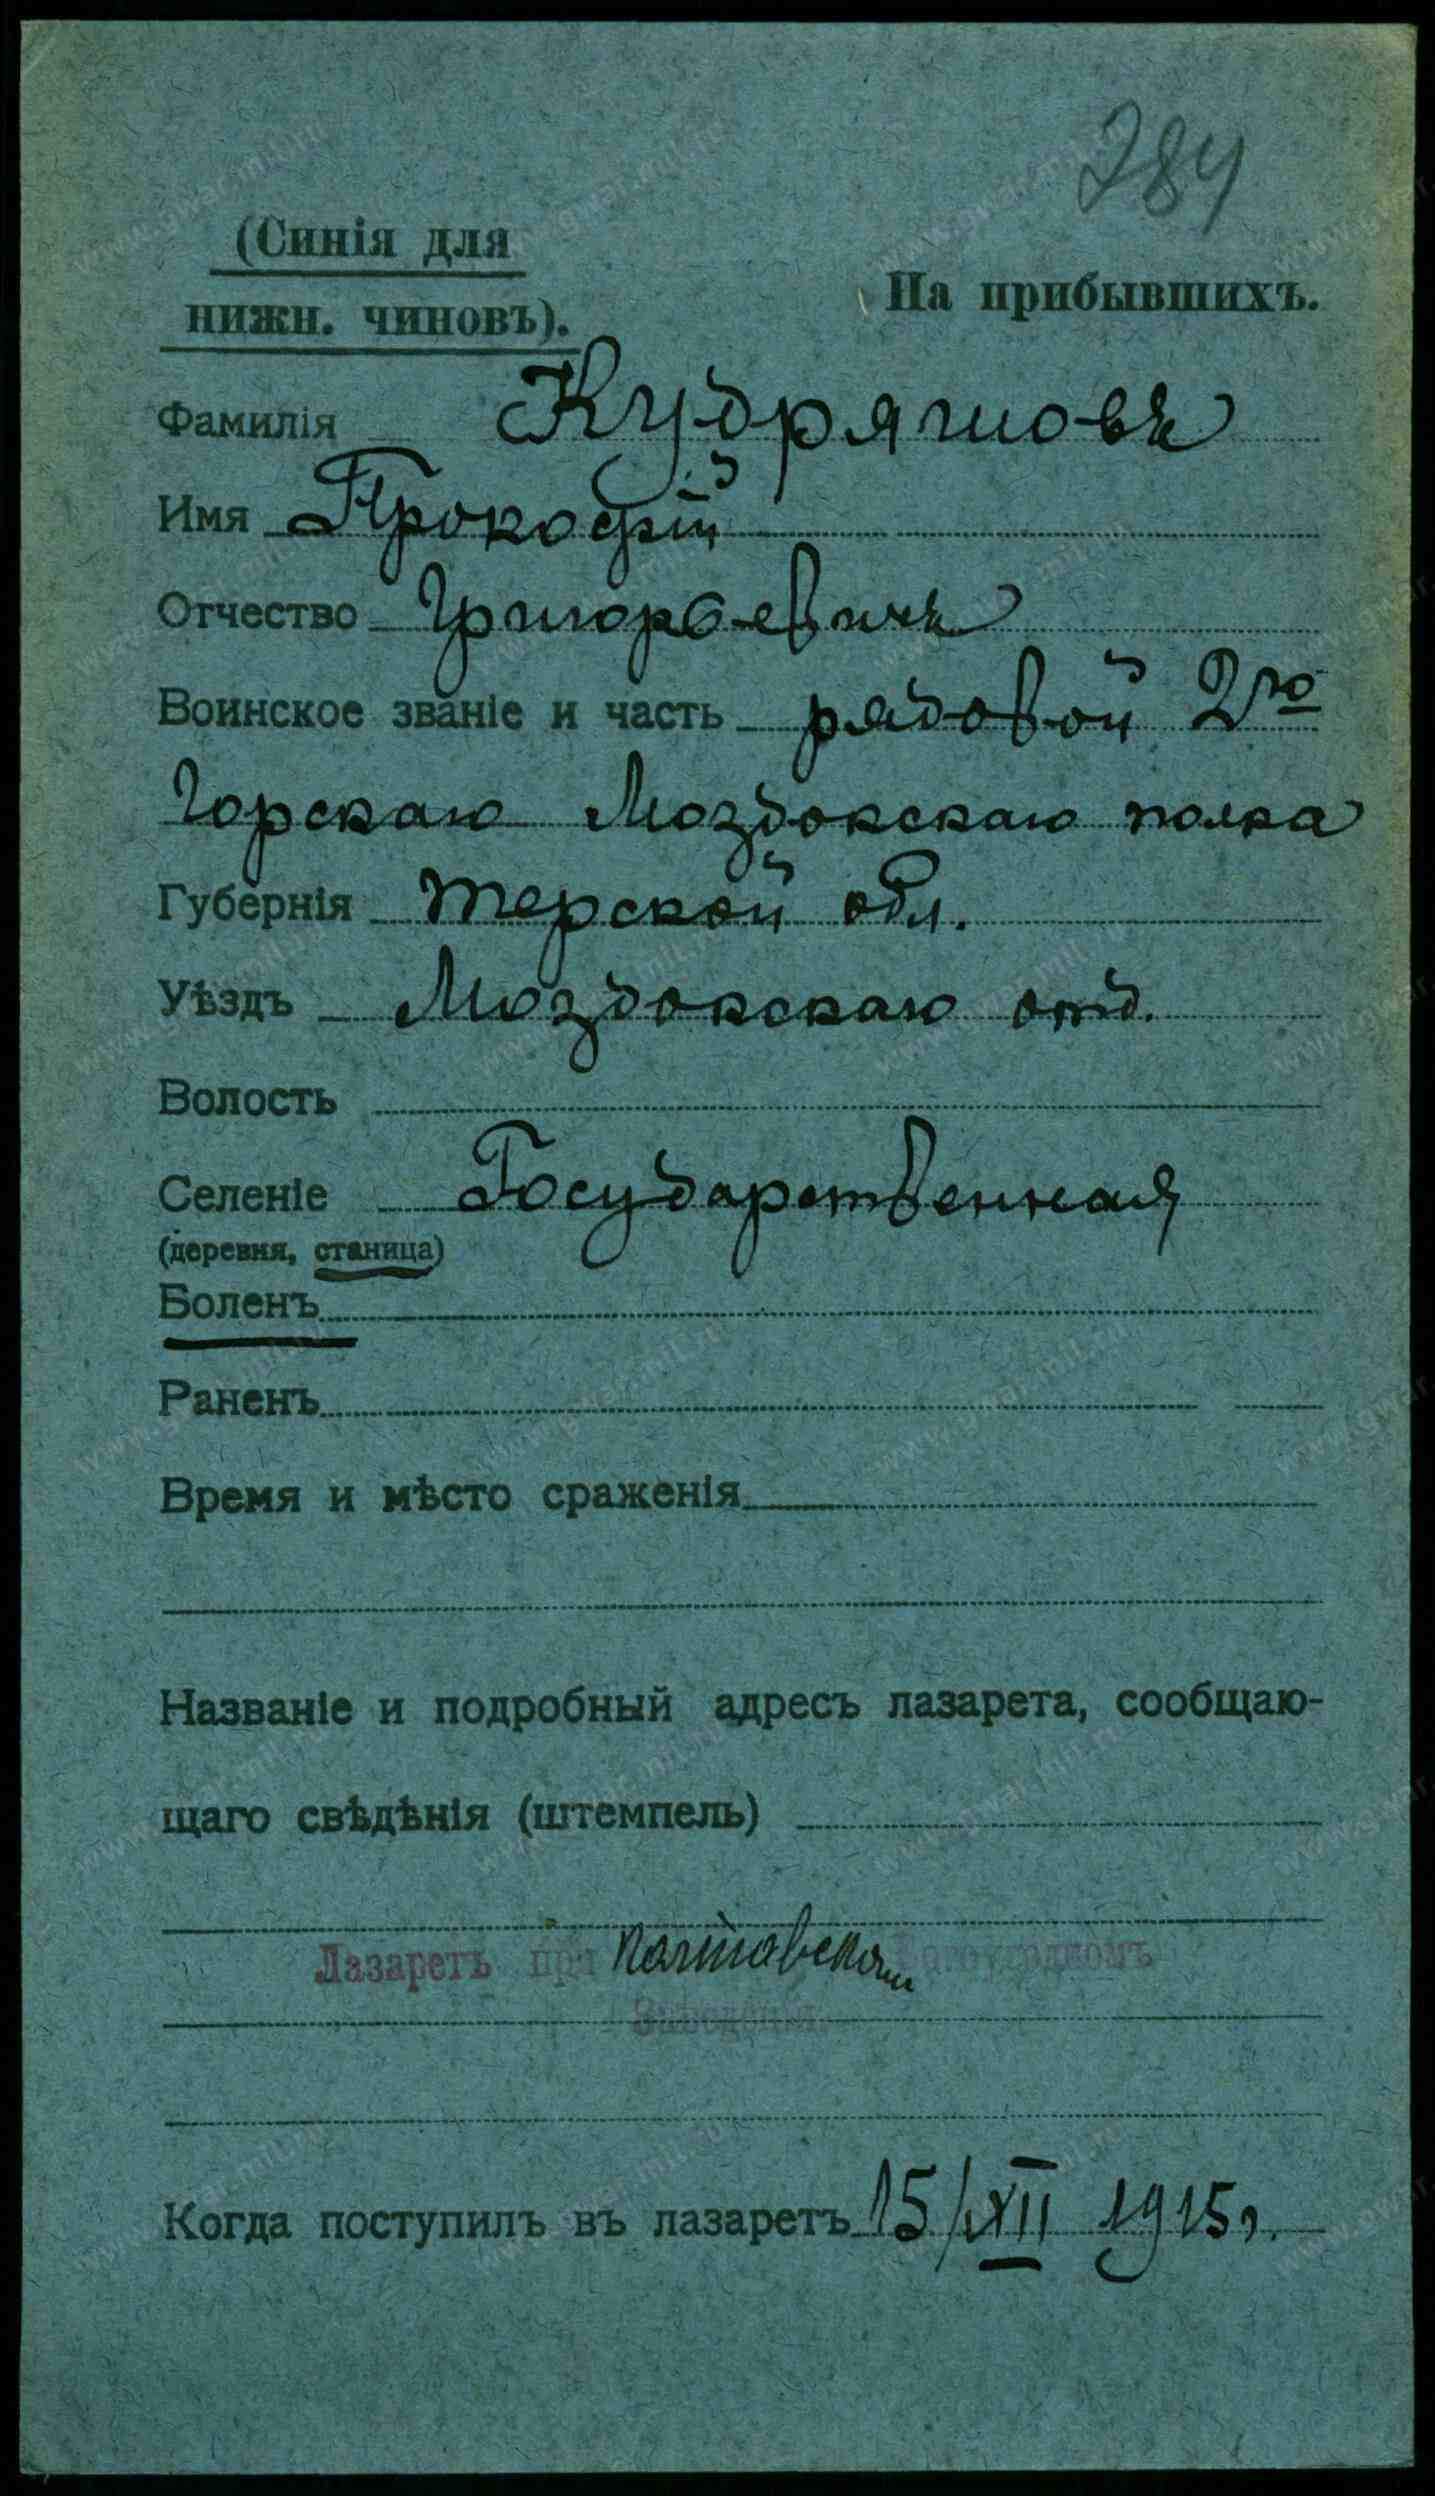 284
(Синія для
нижн. чиновъ).
На прибывшихъ.
Фамилія Кудряшовъ
Имя Прокофій
Отчество Григорьевичъ
Воинское званіе и часть рядовой 2го
Горскаго Моздокскаго полка
Губернія Терской обл.
Уѣздъ Моздокскаго отд.
Волость
Селеніе Государственная
(деревня, станица)
Боленъ
Раненъ
Время и мѣсто сраженія
Названіе и подробный адресъ лазарета, сообщаю-
щаго свѣдѣнія (штемпель)
Лазаретъ при Полтавском Богоугодномъ
Заведеніи.
Когда поступилъ въ лазаретъ 15/XII 1915г.